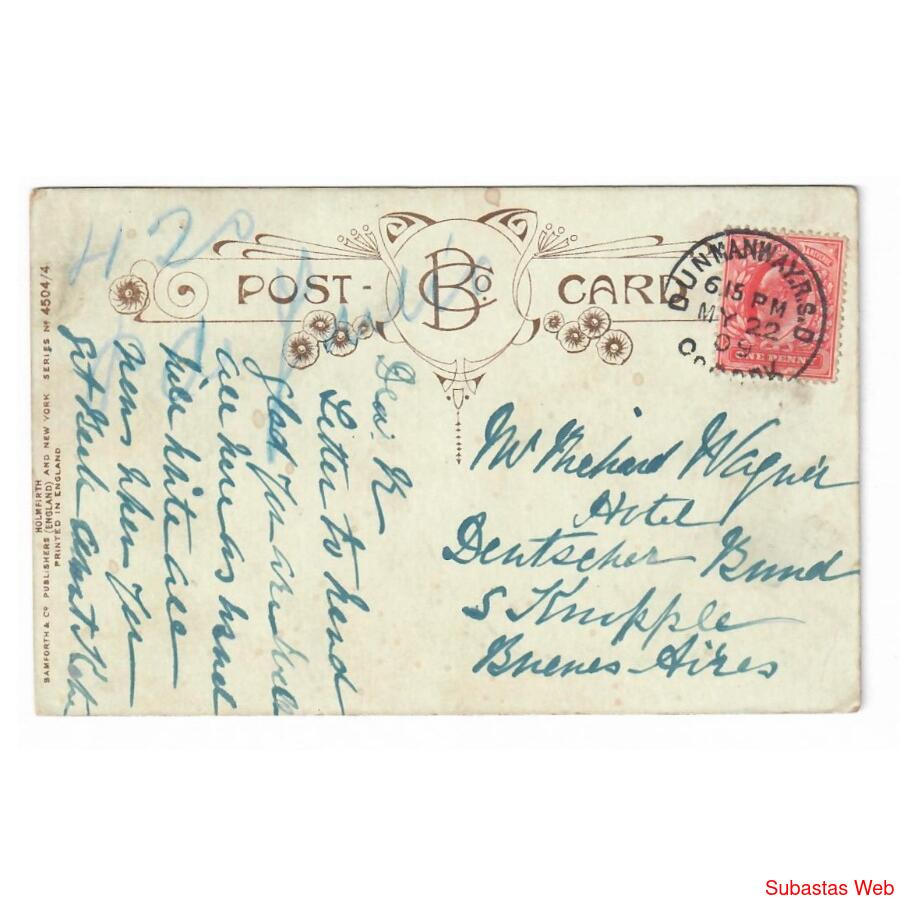 POST- B Co. CARD
DUNMANWAY.R.S.O
6.15 PM
MY 22
09
ONE PENNY
Mr Richard Wagner
Hotel
Deutscher Bund
S Knipple
Buenos-Aires
Dear K
Letter to hand
glad you are well
all here as usual
will write all
news when you
HOLMFIRTH
BAMFORTH & Co PUBLISHERS (ENGLAND) AND NEW YORK SERIES No 4504/4
PRINTED IN ENGLAND
Subastas Web